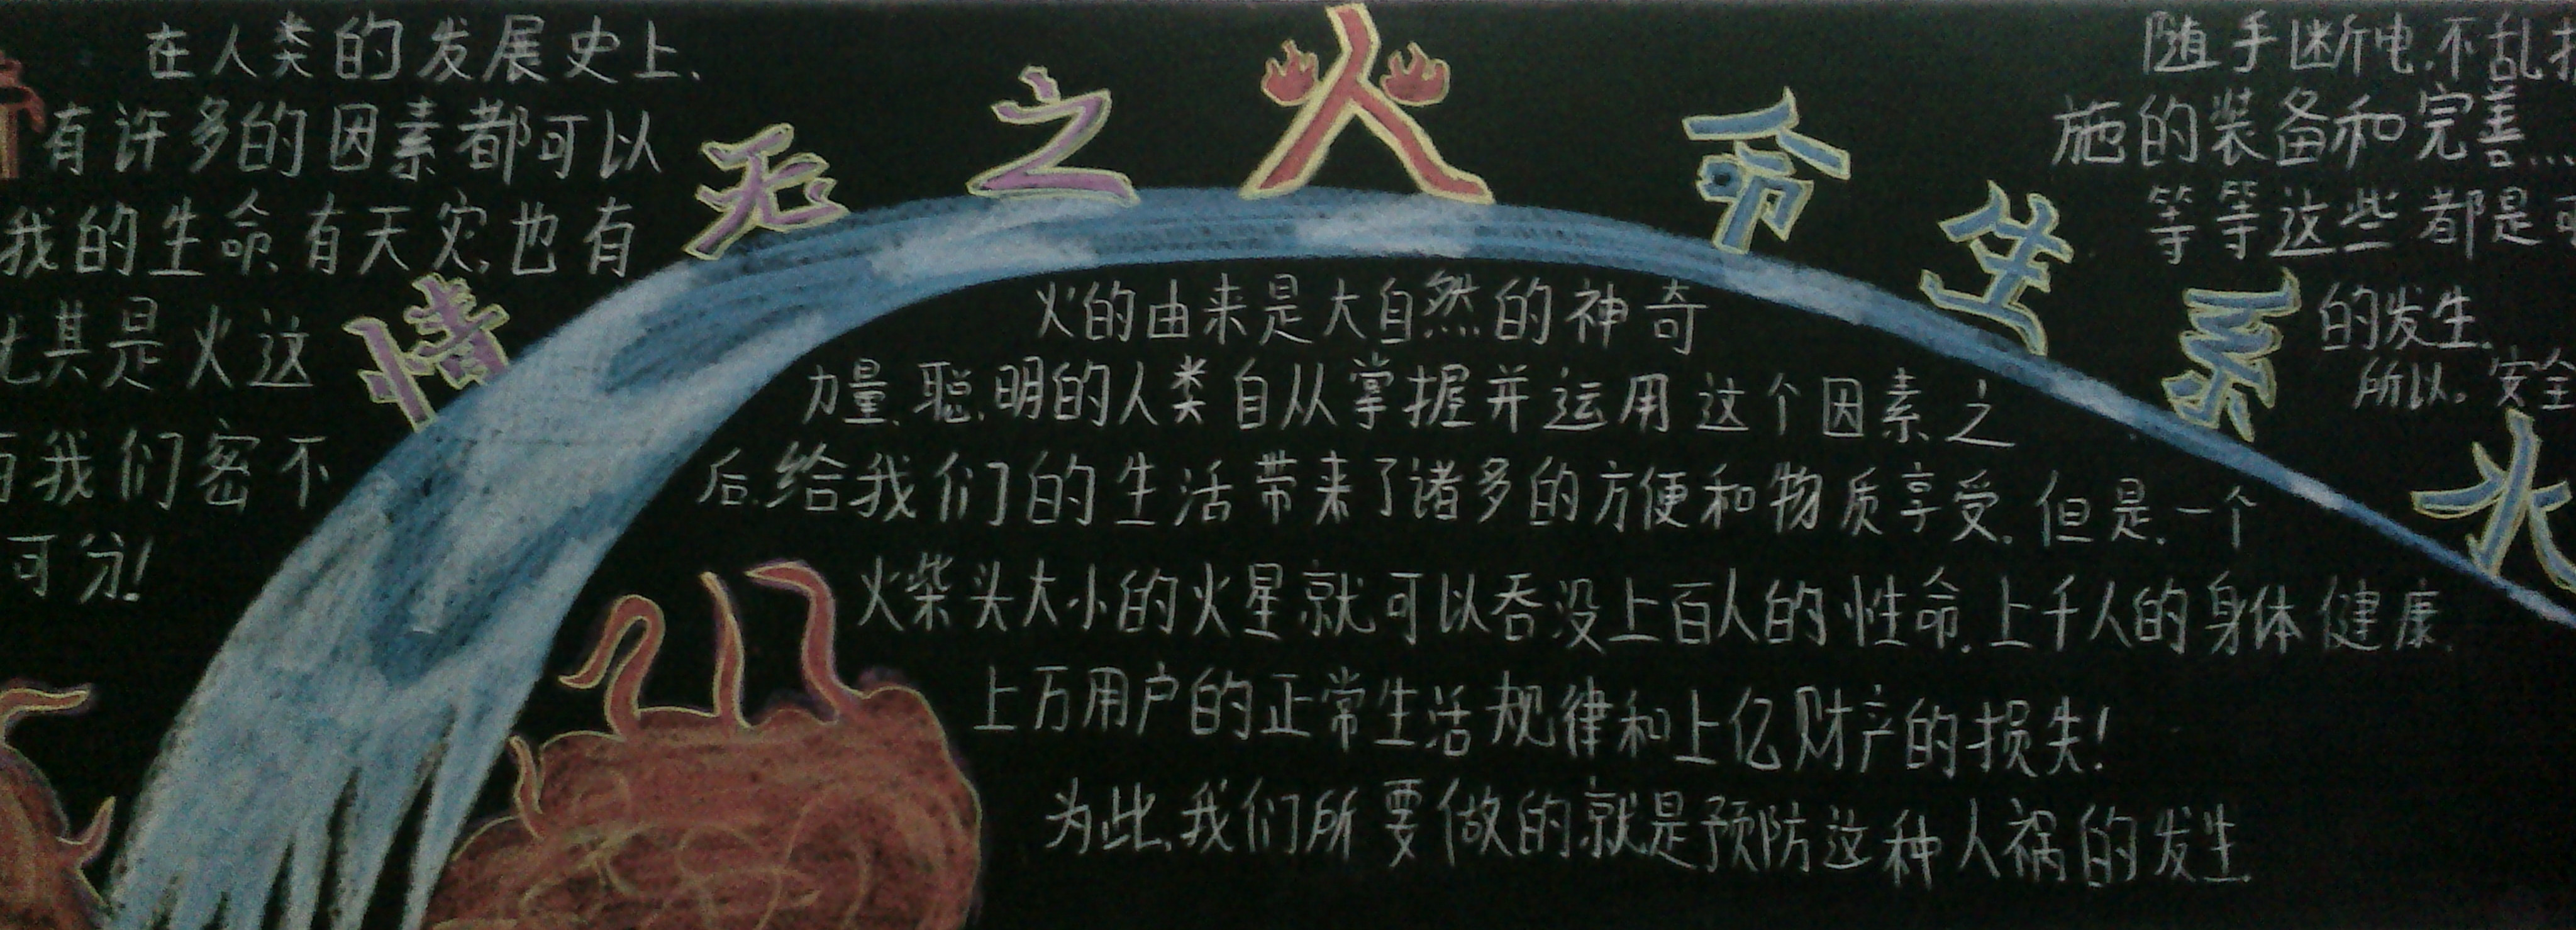 在人类的发展史上,
有许多的因素都可以
我的生命,有天灾,也有
尤其是火这
我们密不
可分!
水系生命火之无情
火的由来是大自然的神奇
力量,聪明的人类自从掌握并运用这个因素之
后,给我们的生活带来了诸多的方便和物质享受,但是,一个
火柴头大小的火星就可以吞没上百人的性命,上千人的身体健康,
上万用户的正常生活规律和上亿财产的损失!
为此,我们所要做的就是预防这种人祸的发生
随手断电,不乱
施的装备和完善...
等等这些都是
的发生.
所以。安全